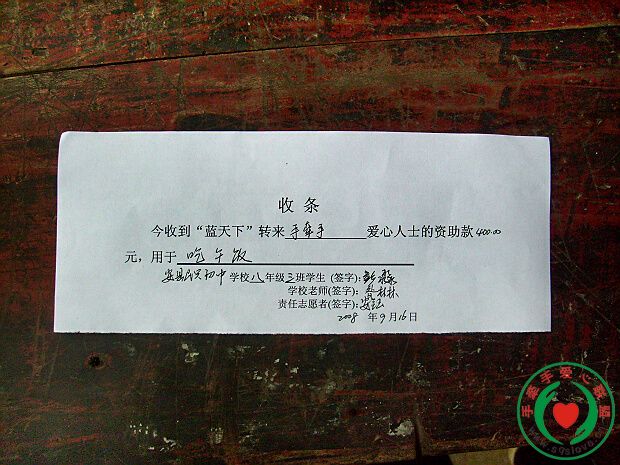 收 条
今收到“蓝天下”转来 手牵手 爱心人士的资助款 400.00
元，用于 吃午饭
安县民兴初中 学校八年级三班学生 (签字):
学校老师(签字):
责任志愿者(签字):
2008 年9月16日
手牵手爱心联盟